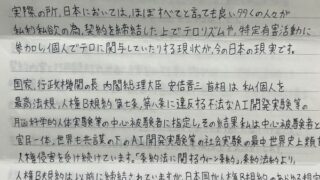 実際の所、日本においては、ほぼすべてと言っても良い99%の人々が
私利私欲の為、契約を締結した上でテロリズムや、特定有害活動に
参加し、個人でテロに関与していたりする現状が、今の日本の現実です。
国家、行政機関の長 内閣総理大臣 安倍晋三 首相は 私個人を
最高法規、人権B規約 第七条、第八条に違反する不法なAI開発実験等の
脳科学的人体実験等の中心被験者に指定し、その結果私は中心被験者と
官民一体、世界も共謀の下のAI開発実験等の社会実験の最中 世界史上類を
人権侵害を受け続けています。「条約法に関するウィーン条約」条約法約より、
人権B規約は以前に締結されていますが、日本国が人権B規約の